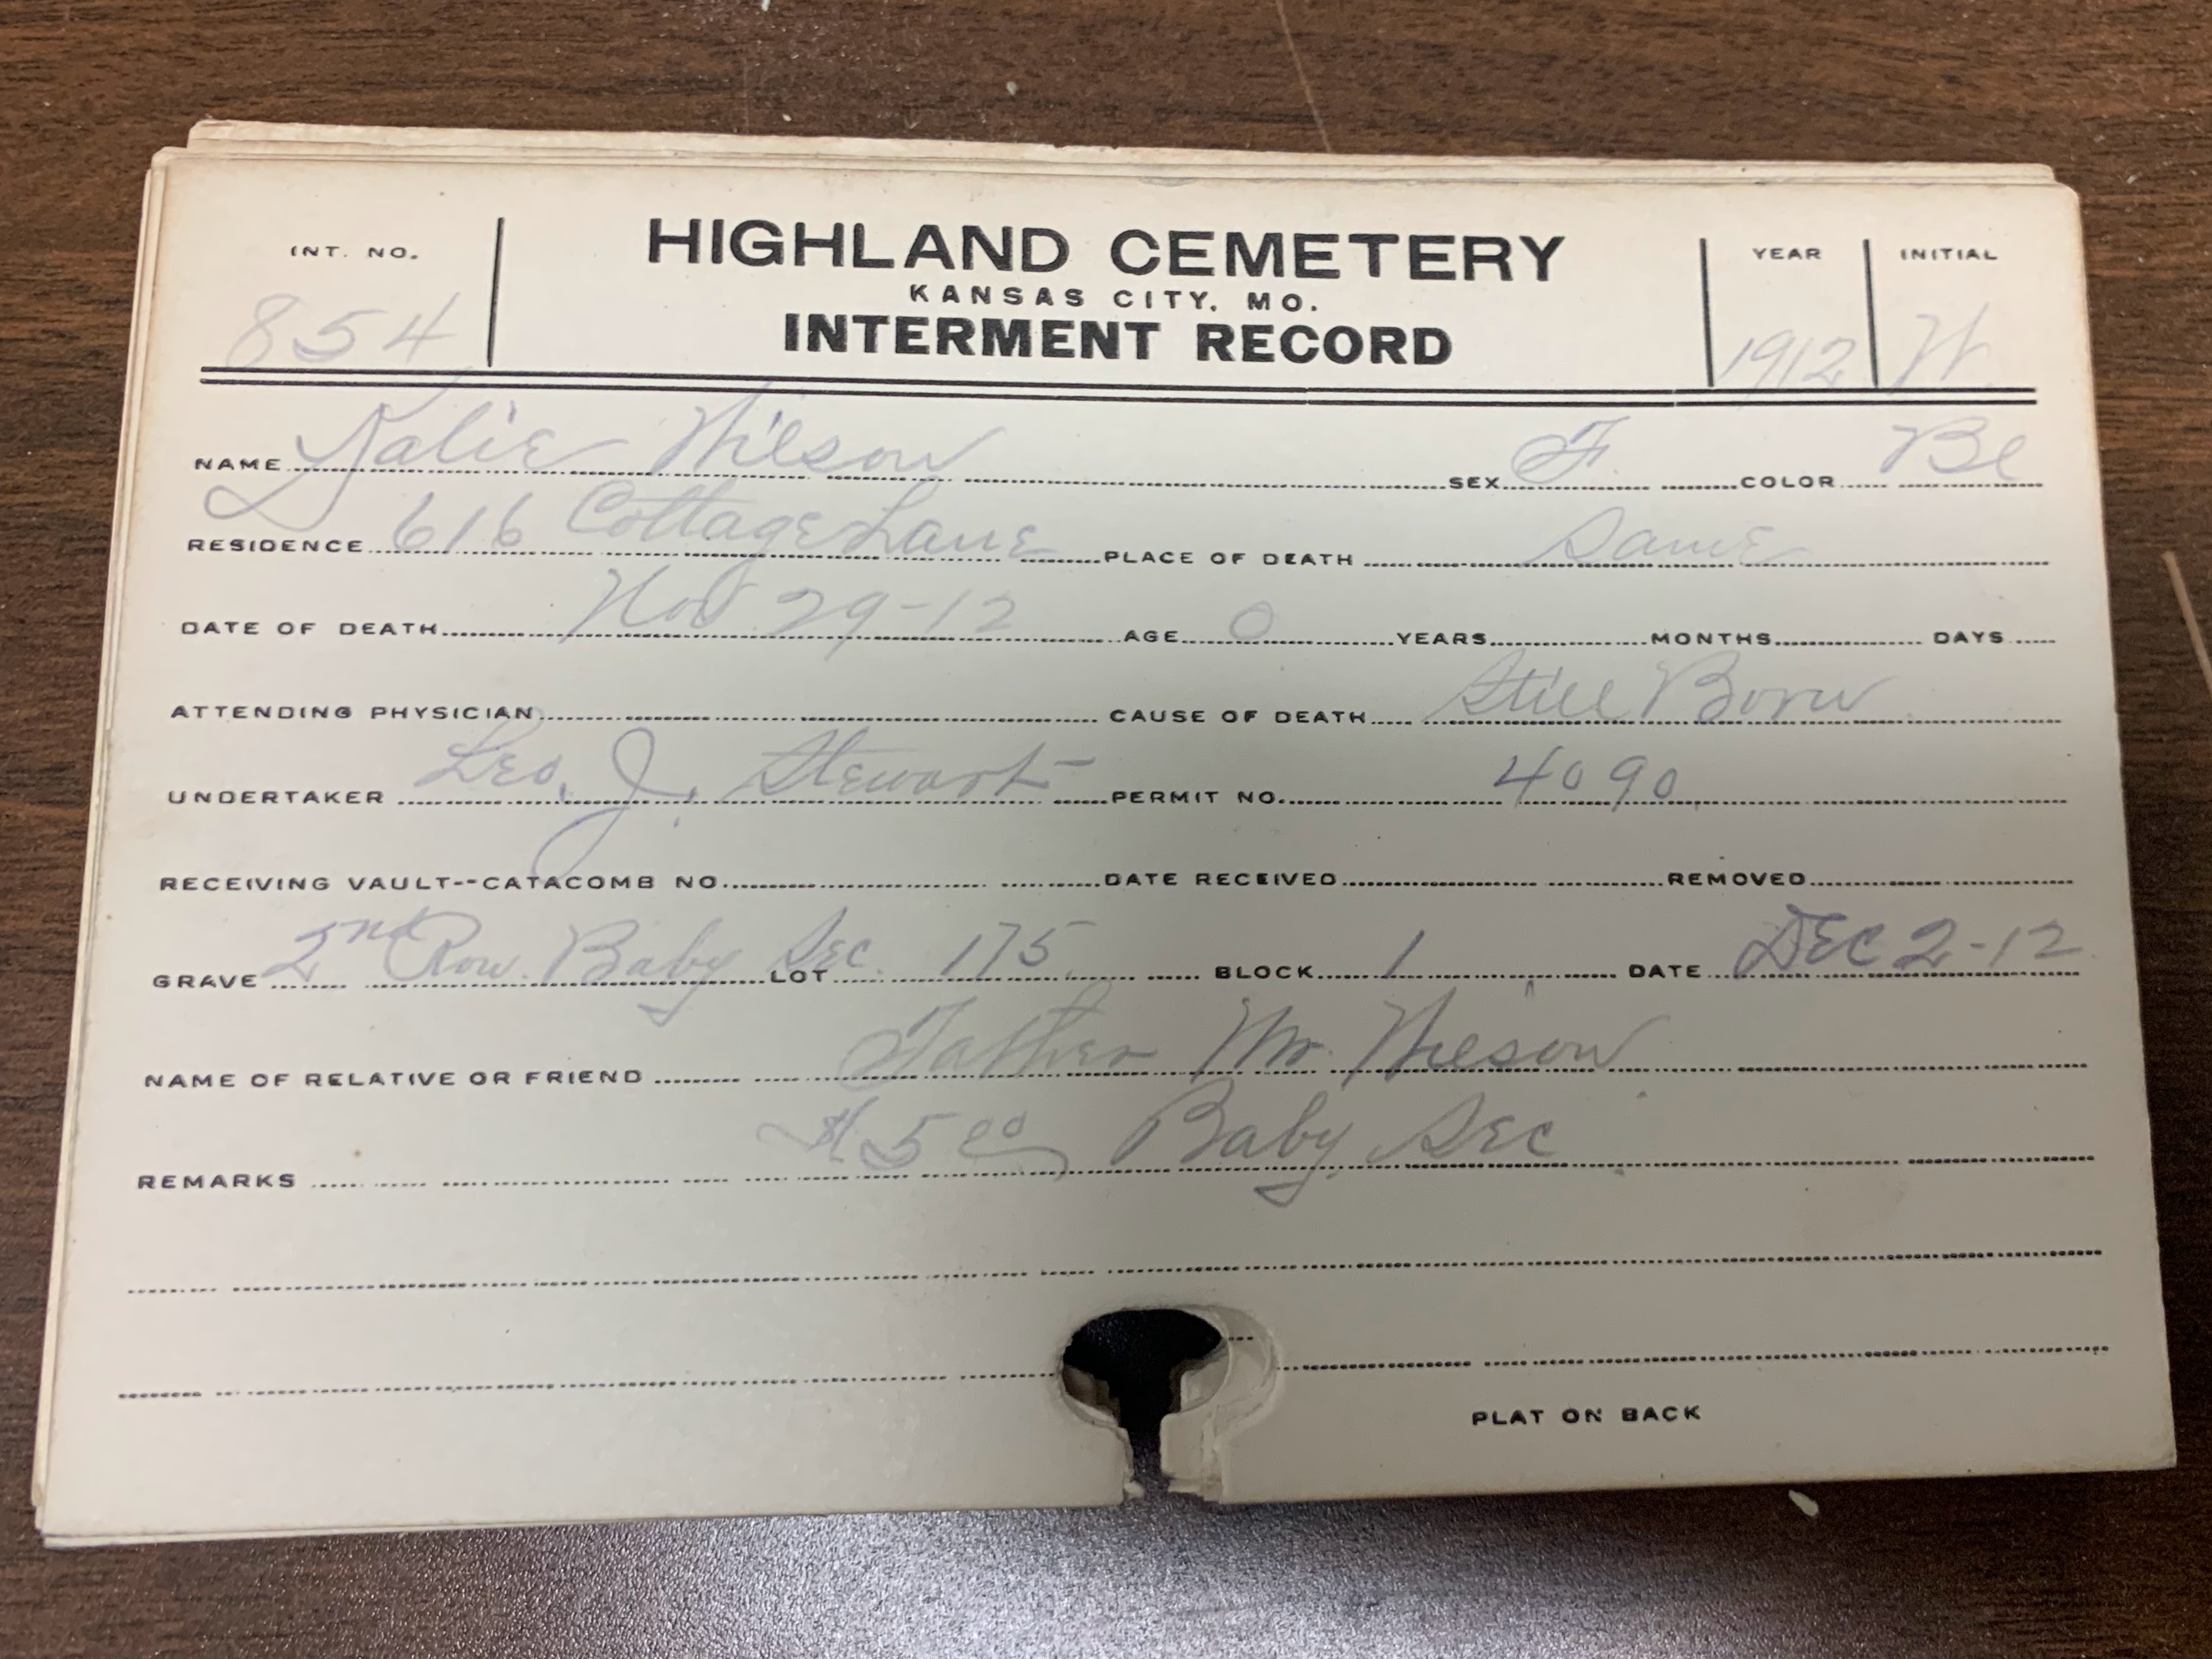 INT. NO. HIGHLAND CEMETERY YEAR INITIAL
KANSAS CITY, MO.
854 INTERMENT RECORD 1912 W.
NAME Katie Wilson SEX F. COLOR Bl
RESIDENCE 616 Cottage Lane PLACE OF DEATH Same
DATE OF DEATH Nov 29-12 AGE 0 YEARS MONTHS DAYS
ATTENDING PHYSICIAN CAUSE OF DEATH Still Born
UNDERTAKER Leo. J. Stewart PERMIT NO. 4090
RECEIVING VAULT--CATACOMB NO. DATE RECEIVED REMOVED
GRAVE 2nd Row. Baby Sec. LOT 175 BLOCK 1 DATE DEC 2-12
NAME OF RELATIVE OR FRIEND Father Mr. Wilson
REMARKS $5.00 Baby Sec
PLAT ON BACK